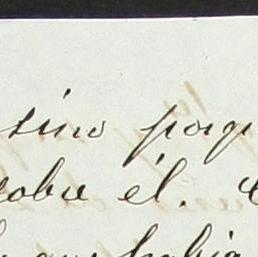 sino porq
sobre él.
que habia